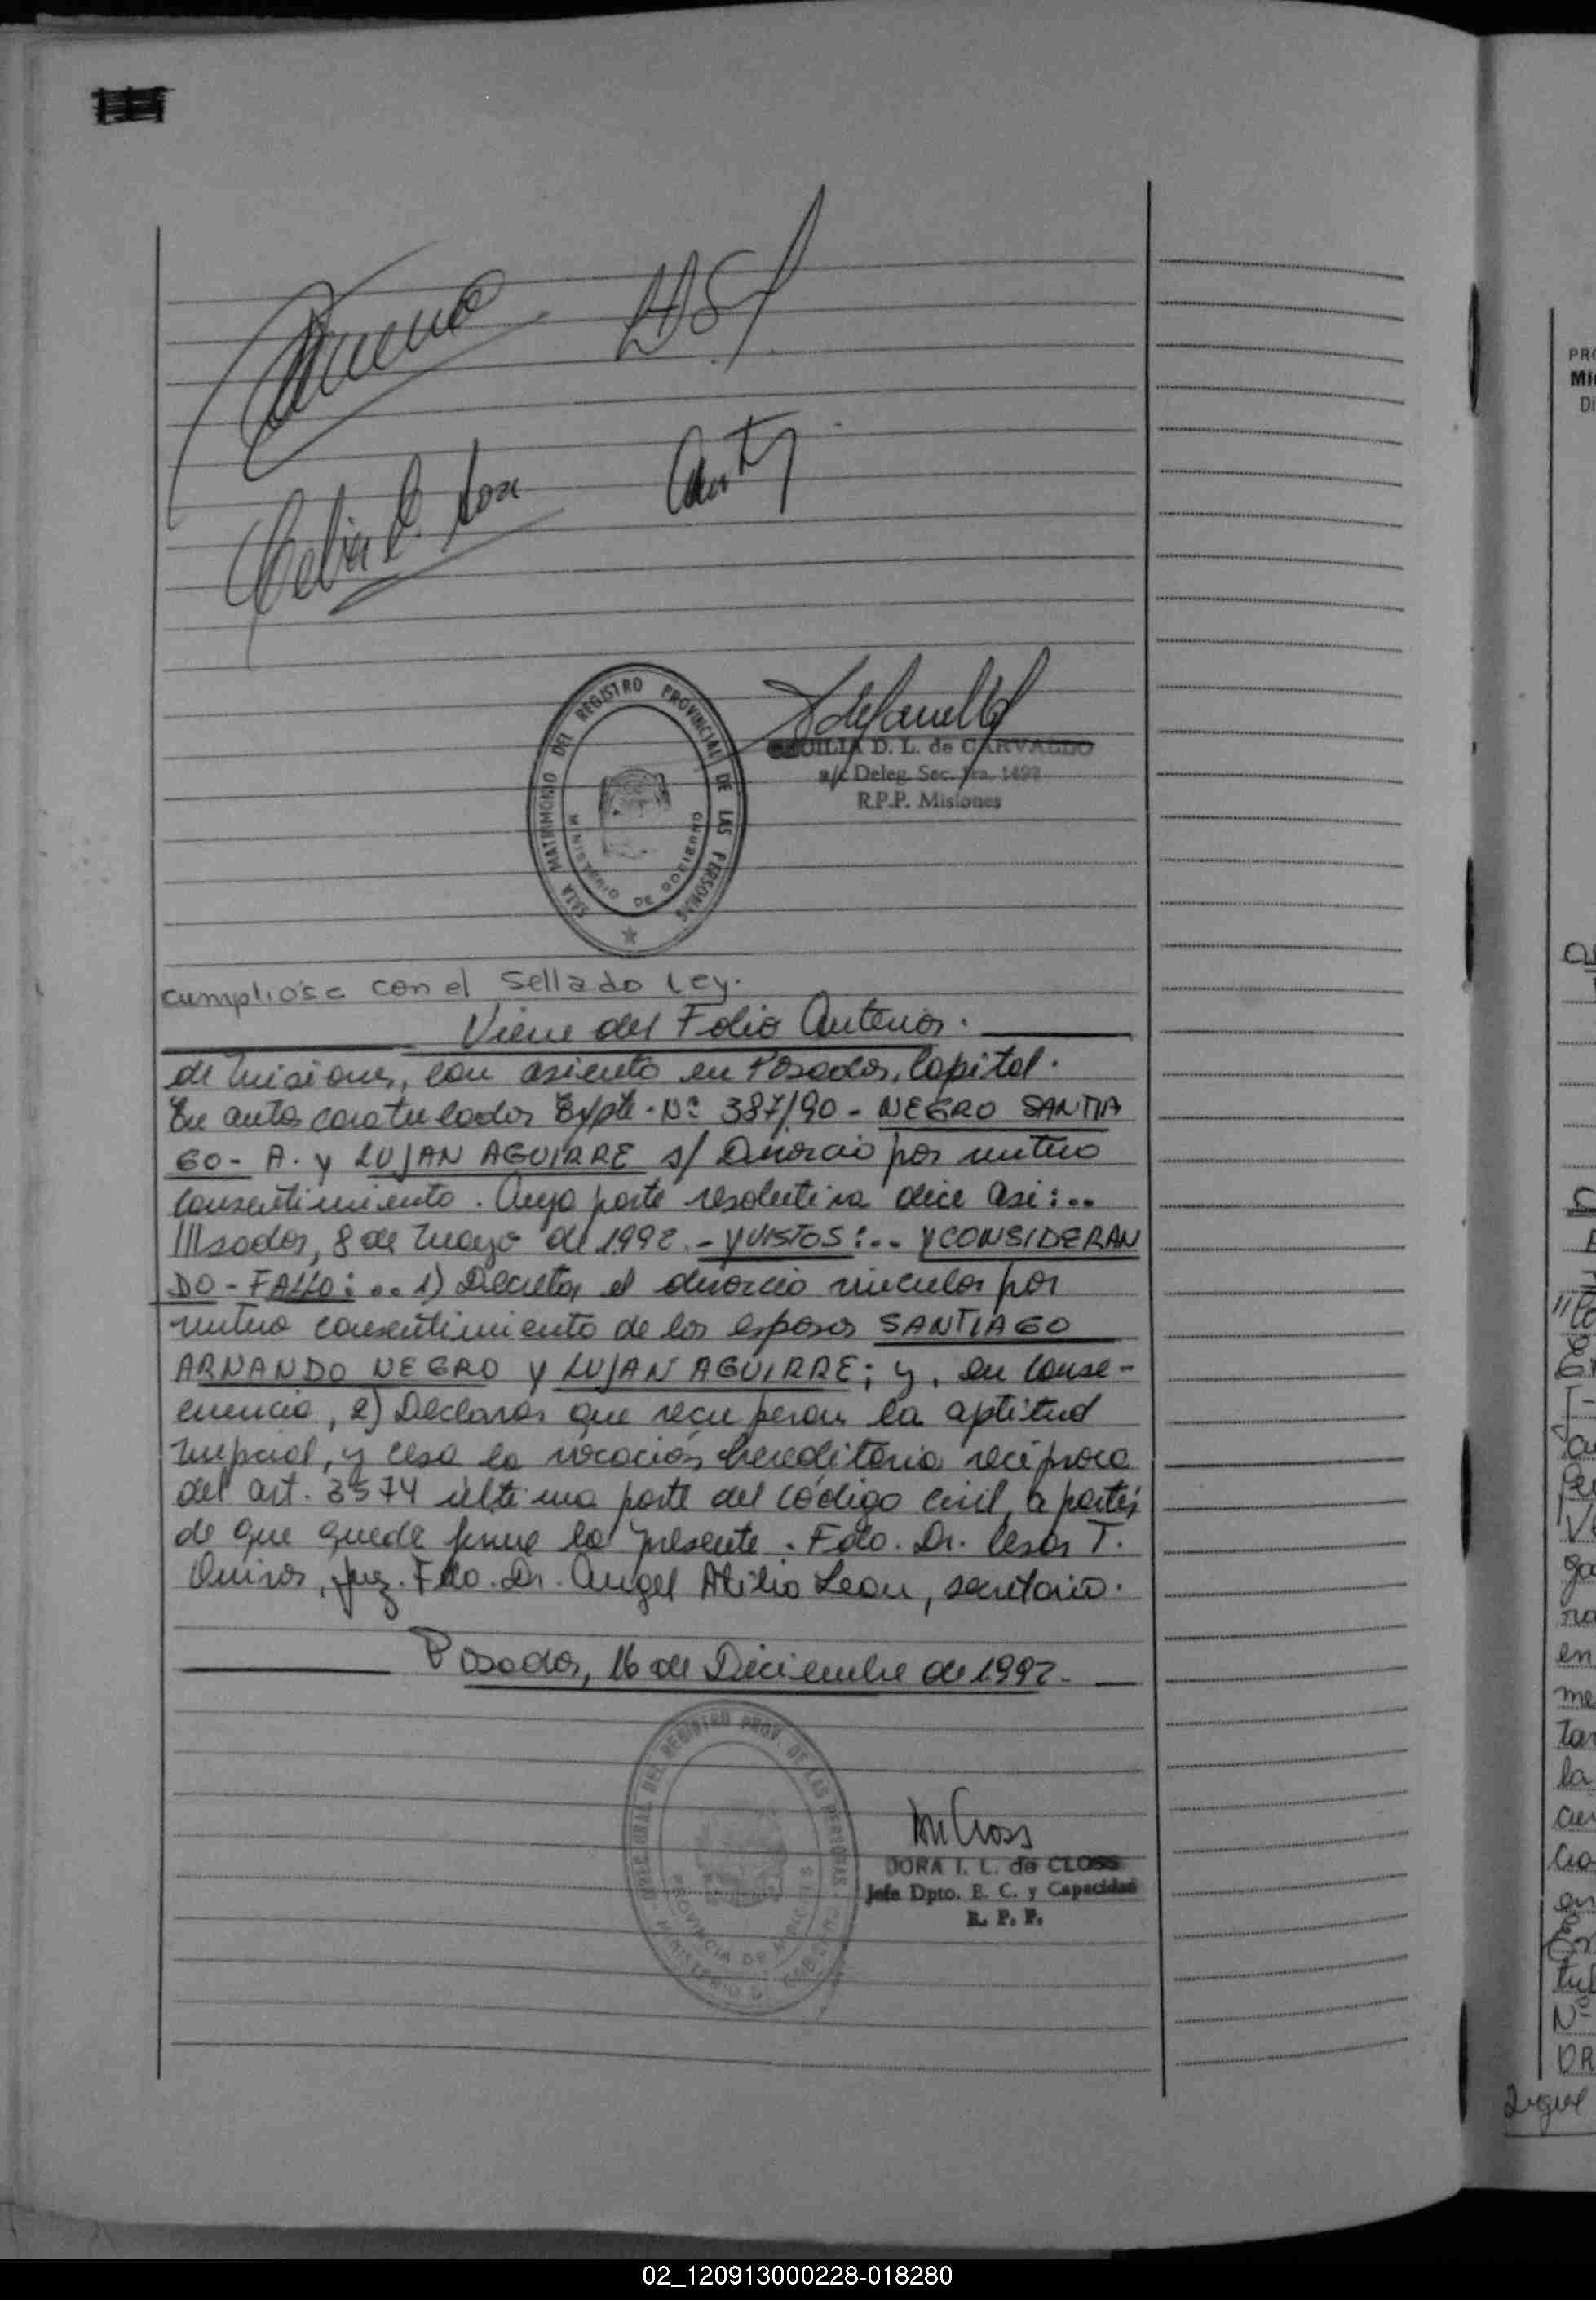 SALA MATRIMONIO DEL REGISTRO PROVINCIAL DE LAS PERSONAS
MINISTERIO DE GOBIERNO
CECILIA D. L. de CARVALLO
a/c Deleg. Sec. 1ra. 1492
R.P.P. Misiones
Cumplióse con el Sellado Ley.
Viene del Folio Anterior.
de Misiones, con asiento en Posadas, Capital.
En autos caratulados Expte. Nº 387/90 - NEGRO SANTIA
GO- A. y LUJAN AGUIRRE s/ Divorcio por mutuo
Consentimiento. Cuya parte resolutiva dice así:..
///sadas, 8 de Mayo de 1992.- Y VISTOS:.. Y CONSIDERAN
DO - FALLO:.. 1) Decretar el divorcio vincular por
mutuo consentimiento de los esposos SANTIAGO
ARNANDO NEGRO y LUJAN AGUIRRE; y, en conse-
cuencia, 2) Declarar que recuperan la aptitud
nupcial, y cesa la vocación hereditaria recíproca
del art. 3574 última parte del Código Civil, a partir
de que quede firme la presente. Fdo. Dr. Cesar T.
Quiros, Juez. Fdo. Dr. Angel Atilio Leon, secretario.
Posadas, 16 de Diciembre de 1992.
DEL REGISTRO PROV. DE LAS PERSONAS
PROVINCIA DE MISIONES
DORA I. L. de CLOSS
Jefe Dpto. E. C. y Capacidad
R. P. P.
02_120913000228-018280